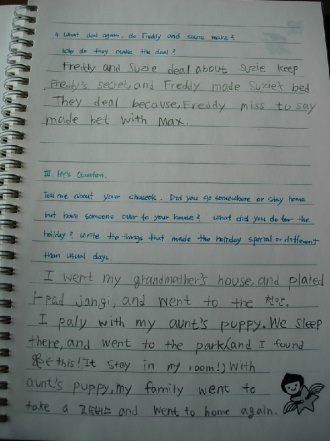 4. What deal again, do Freddy and Suzie make?
Why do they make the deal?
Freddy and Suzie deal about Suzie keep
Freddy's secret, and Freddy made Suzie's bed
They deal because, Freddy miss to say
made bet with Max.
III. Let's Question.
Tell me about your chuseok. Did you go somewhere or stay home
but have someone over to your house? What did you do for the
holiday? Write the things that made the holiday special or different
than usual days.
I went my grandmother's house, and played
I-Pad jangi, and went to the
I paly with my aunt's puppy. We sleep
there, and went to the park(and I found
←this! It stay in my room!) With
aunt's puppy, my family went to
take a and went to home again.